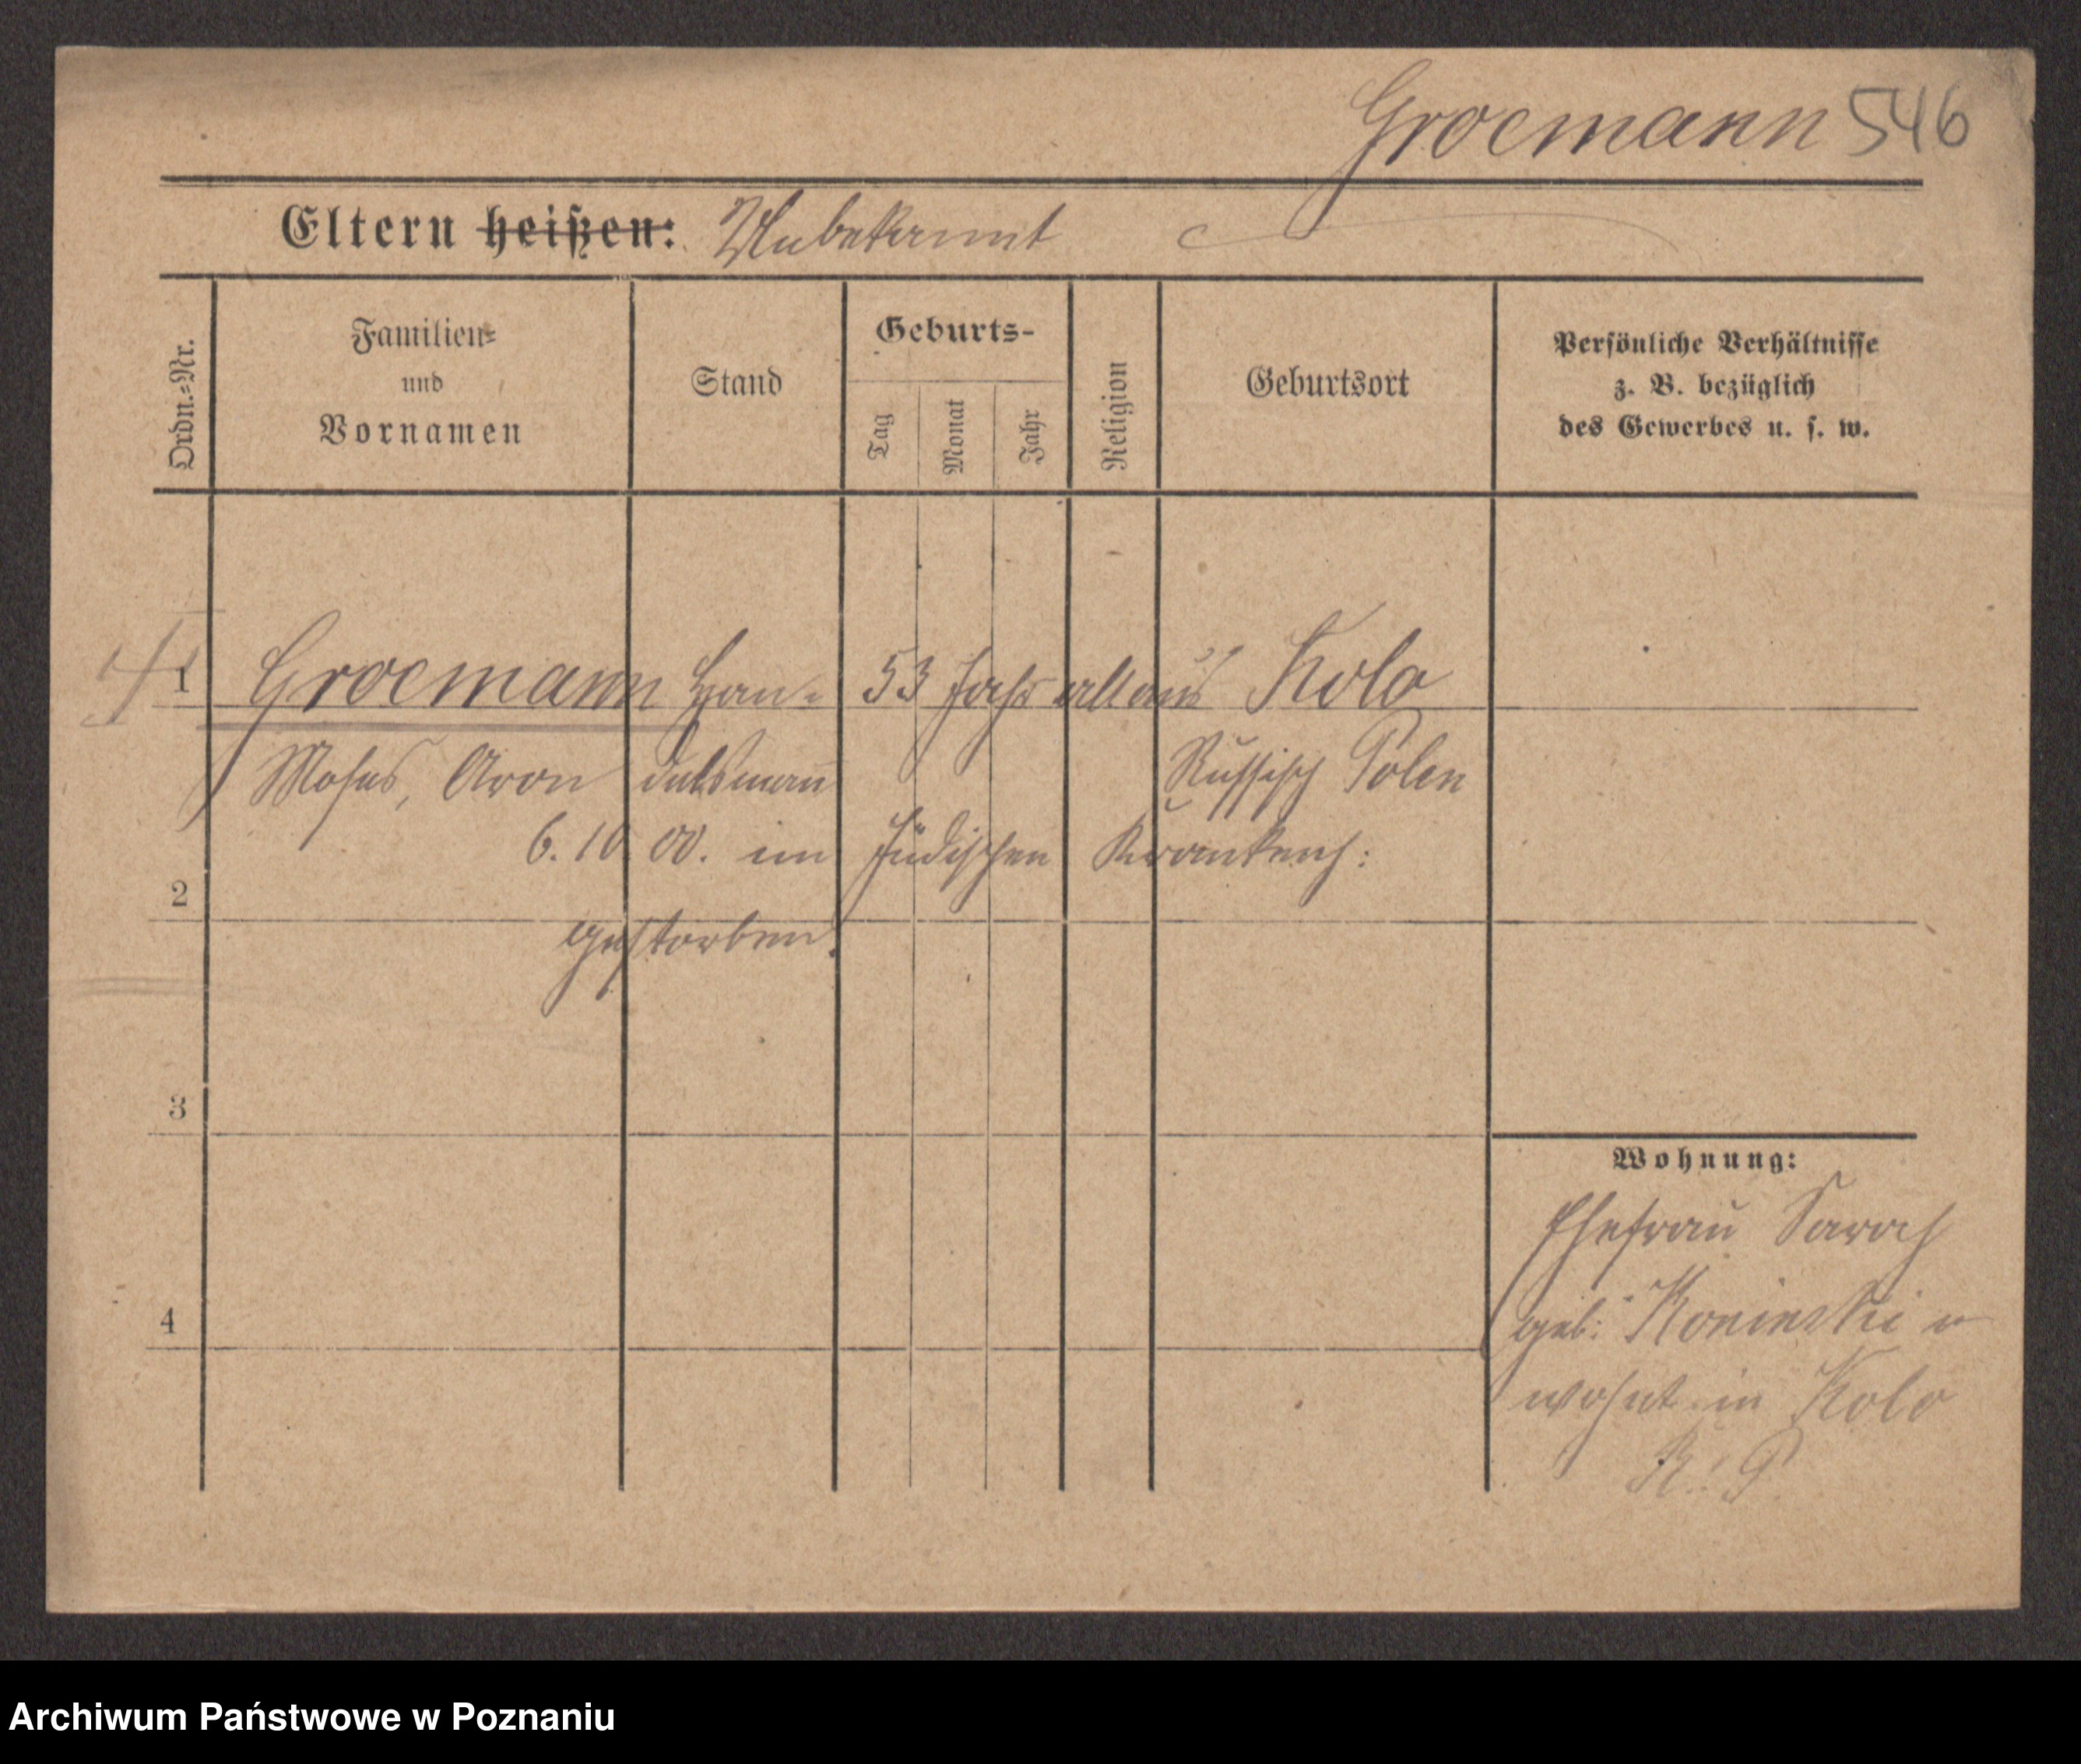 Grocmann 546
Eltern heißen: Unbekannt
Ordn.-Nr.
Familien-
und
Vornamen
Stand
Geburts-
Tag
Monat
Jahr
Religion
Geburtsort
Persönliche Verhältnisse
z. B. bezüglich
des Gewerbes u. s. w.
1 Grocmann Han- 53 Jahr alt aus Kolo
Moses, Aron delsmann Russisch Polen
6. 10. 00. im Jüdischen Krankenh:
2
gestorben.
3
Wohnung:
Ehefrau Sarah
4
geb: Koninski
wohnt in Kolo
R. P.
Archiwum Państwowe w Poznaniu